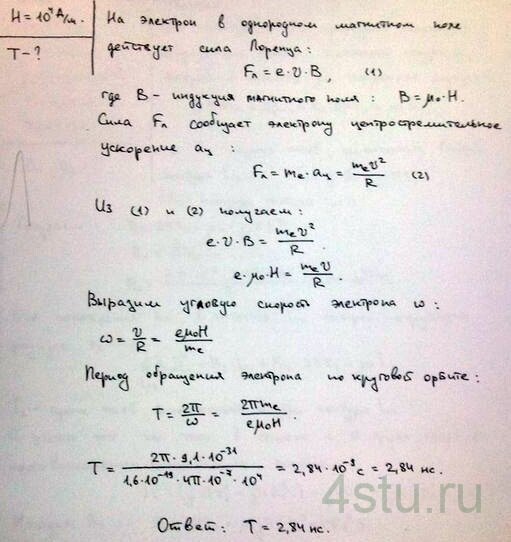 H = 10⁴ А/м.
T - ?
На электрон в однородном магнитном поле
действует сила Лоренца:
Fл = e·υ·B, (1)
где B - индукция магнитного поля: B = μ₀·H.
Сила Fл сообщает электрону центростремительное
ускорение aц:
Fл = mₑ·aц = mₑυ²/R (2)
Из (1) и (2) получаем:
e·υ·B = mₑυ²/R.
e·μ₀·H = mₑυ/R.
Выразим угловую скорость электрона ω:
ω = υ/R = eμ₀H/mₑ
Период обращения электрона по круговой орбите:
T = 2π/ω = 2πmₑ/eμ₀H.
T = 2π·9,1·10⁻³¹/1,6·10⁻¹⁹·4π·10⁻⁷·10⁴ = 2,84·10⁻⁹ с = 2,84 нс.
4stu.ru
Ответ: T = 2,84 нс.